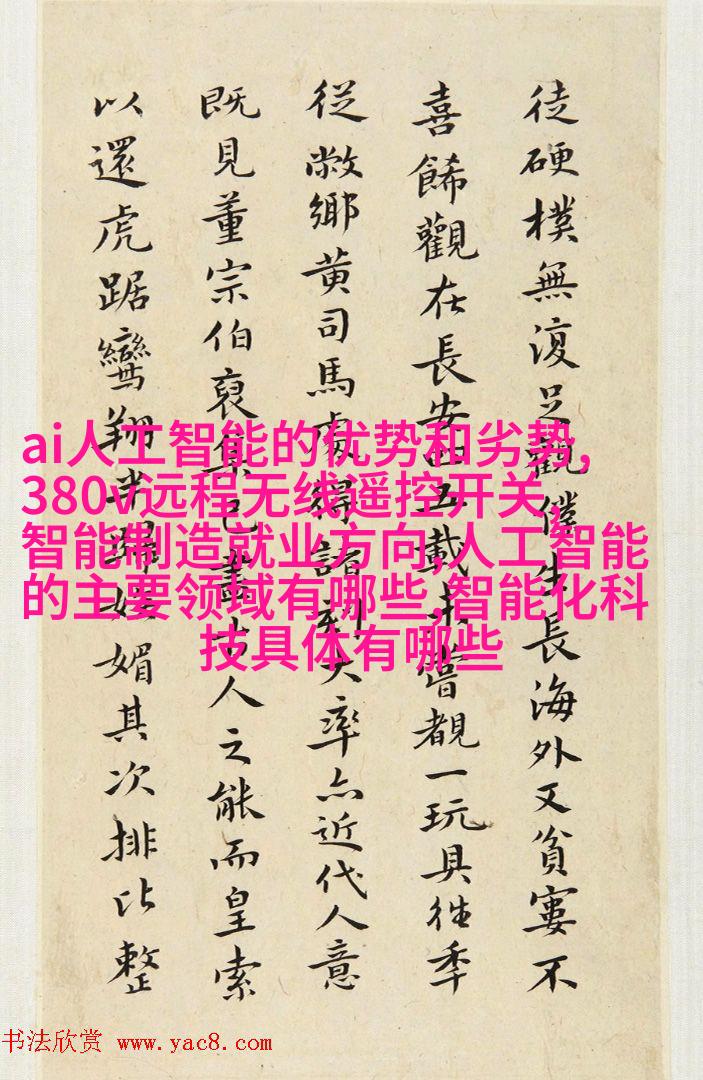 徒硬樸無復足觀僕生長海外又貧窶不
喜餙觀在長安四五載未嘗覩一玩具往季
從敝鄉黄司馬處得大率亦近代人意
既見董宗伯裒集已畫古人之能而皇索
以還虎踞鸞翔媚其次排比整
ai人工智能的优势和劣势,
380v远程无线遥控开关,
智能制造就业方向,人工智能
的主要领域有哪些,智能化科
技具体有哪些
书法欣赏 www.yac8.com